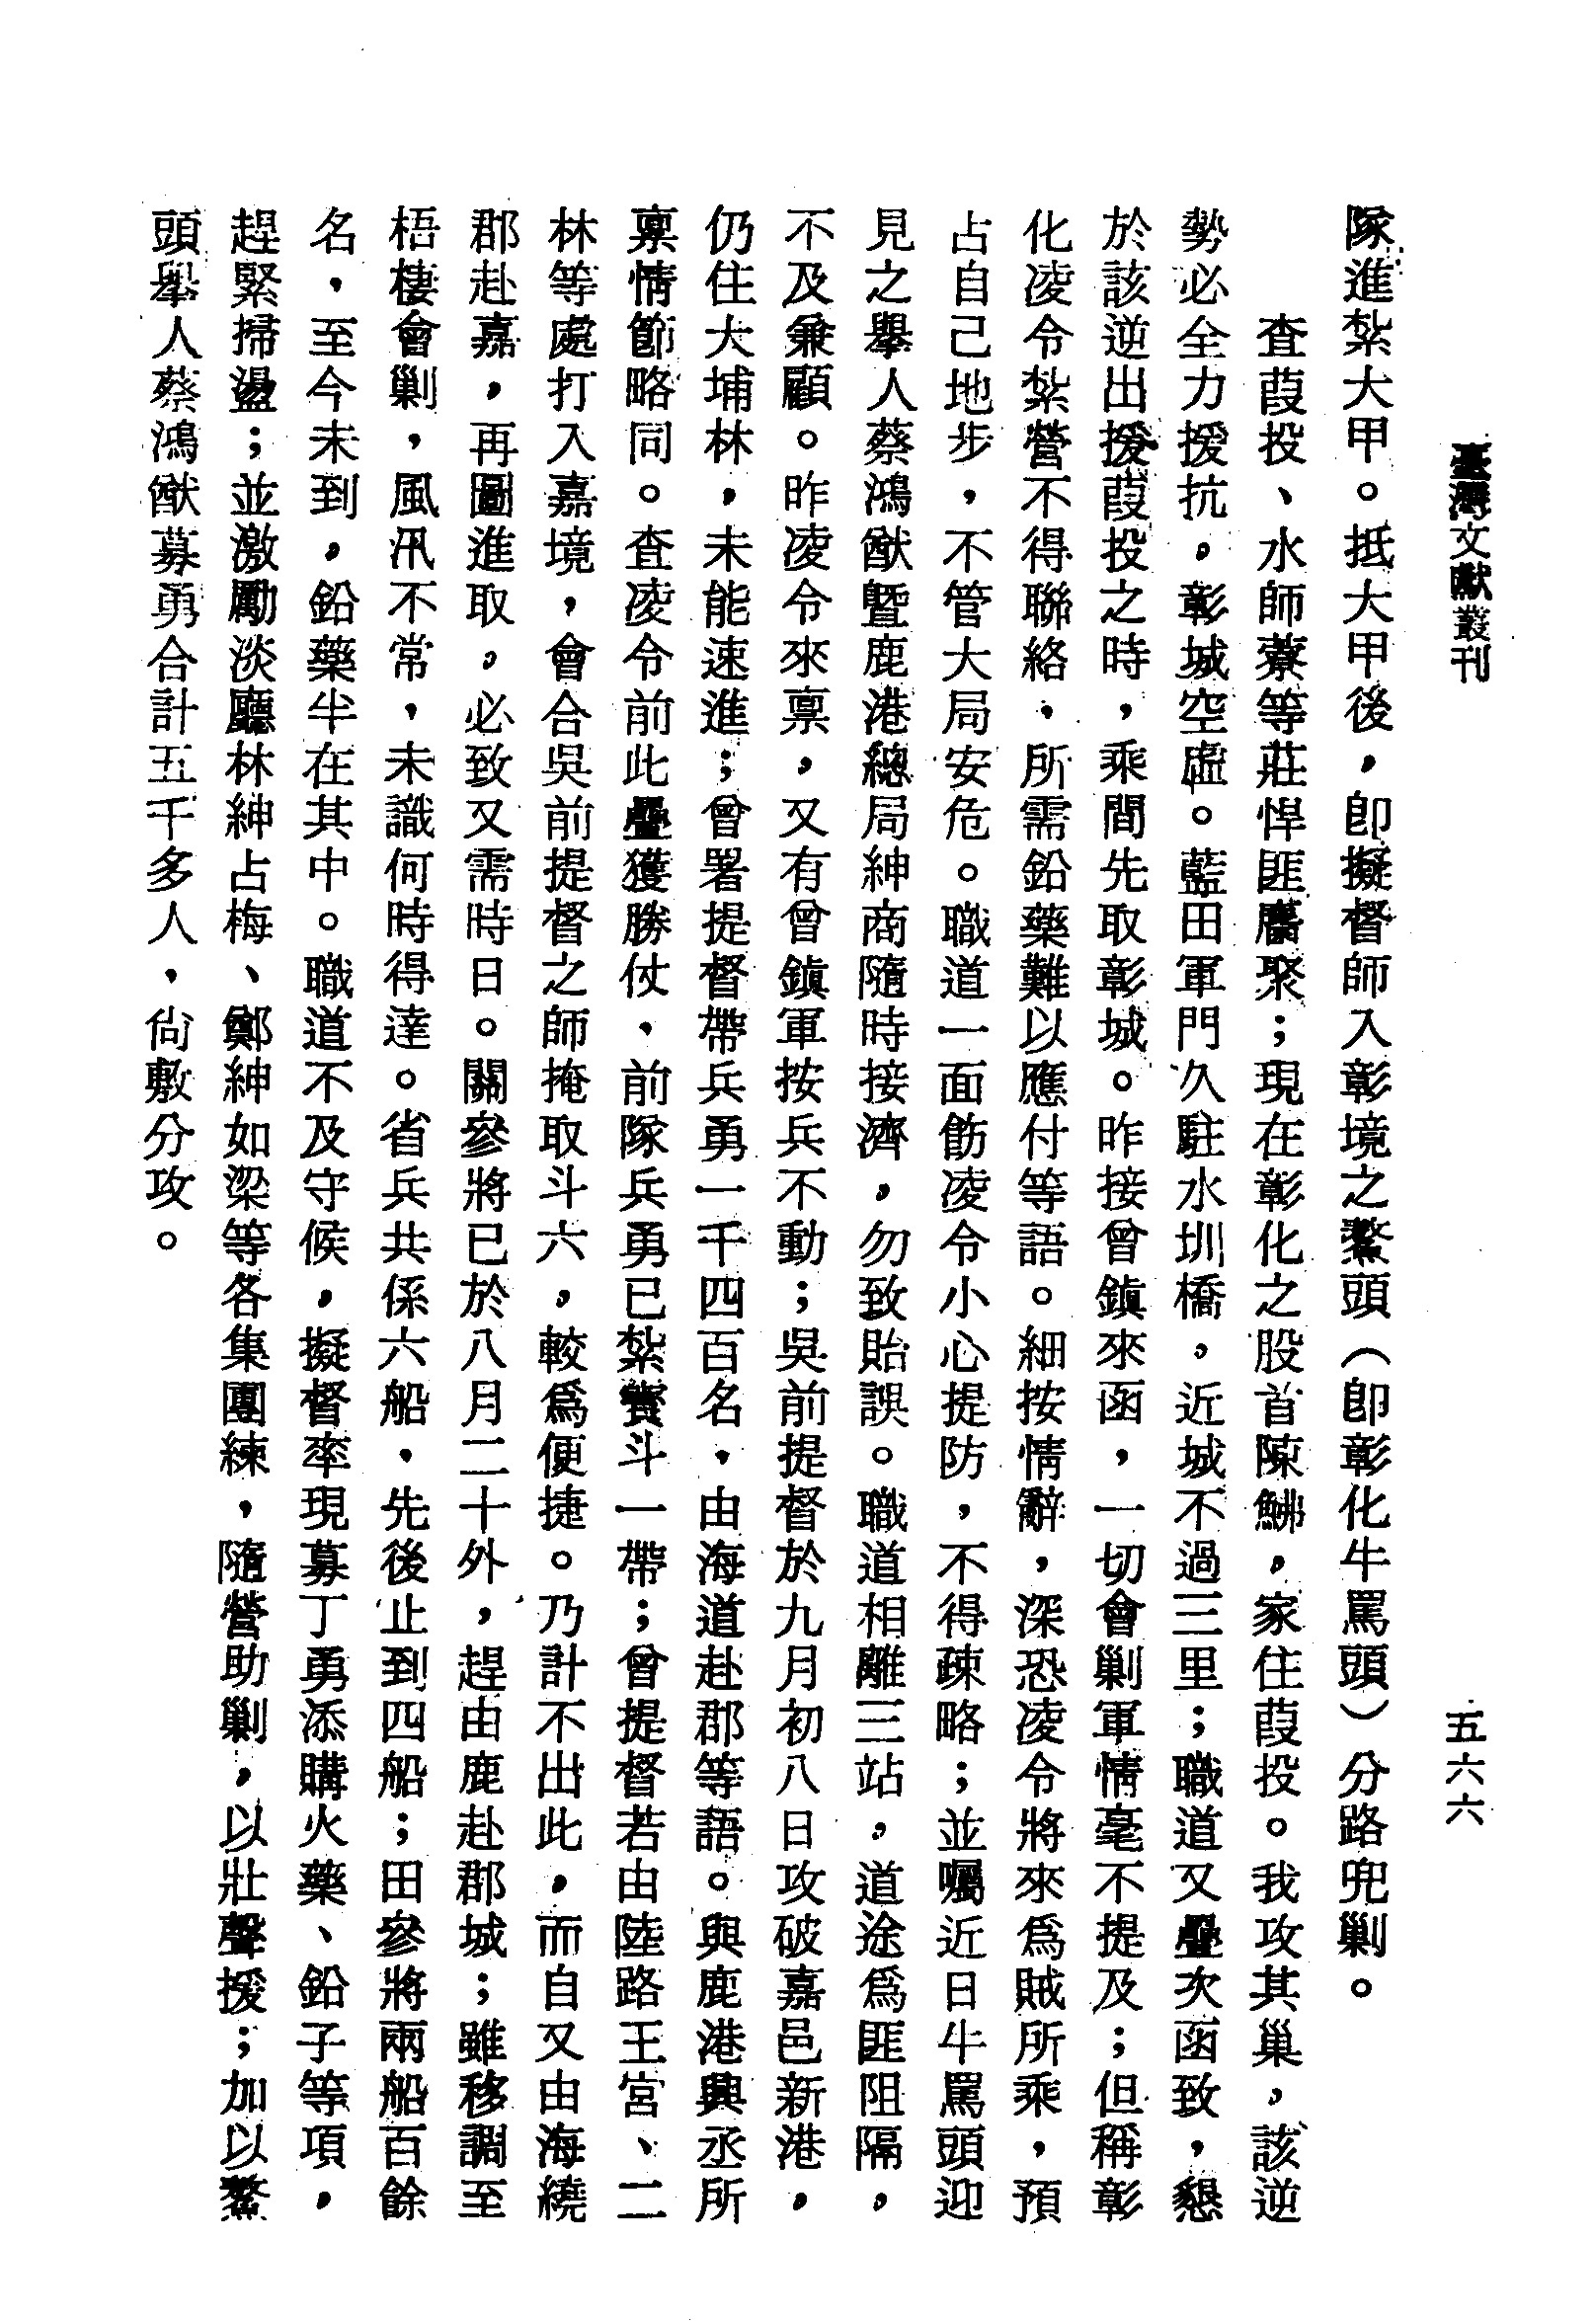 臺灣文獻叢刊
五六六
隊進紮大甲。抵大甲後，卽擬督師入彰境之鰲頭（卽彰化牛罵頭）分路兜剿。
查葭投、水師藔等莊悍匪麕聚；現在彰化之股首陳鮄，家住葭投。我攻其巢，該逆
勢必全力援抗，彰城空虛。藍田軍門久駐水圳橋，近城不過三里；職道又疊次函致，懇
於該逆出援葭投之時，乘間先取彰城。昨接曾鎮來函，一切會剿軍情毫不提及；但稱彰
化凌令紮營不得聯絡，所需鉛藥難以應付等語。細按情辭，深恐凌令將來爲賊所乘，預
占自己地步，不管大局安危。職道一面飭凌令小心提防，不得疎略；並囑近日牛罵頭迎
見之舉人蔡鴻猷曁鹿港總局紳商隨時接濟，勿致貽誤。職道相離三站，道途爲匪阻隔，
不及兼顧。昨凌令來禀，又有曾鎮軍按兵不動；吳前提督於九月初八日攻破嘉邑新港，
仍住大埔林，未能速進；曾署提督帶兵勇一千四百名，由海道赴郡等語。與鹿港興丞所
禀情節略同。查凌令前此疊獲勝仗，前隊兵勇已紮寶斗一帶；曾提督若由陸路王宮、二
林等處打入嘉境，會合吳前提督之師掩取斗六，較爲便捷。乃計不出此，而自又由海繞
郡赴嘉，再圖進取，必致又需時日。關參將已於八月二十外，趕由鹿赴郡城；雖移調至
梧棲會剿，風汛不常，未識何時得達。省兵共係六船，先後止到四船；田參將兩船百餘
名，至今未到，鉛藥半在其中。職道不及守候，擬督率現募丁勇添購火藥、鉛子等項，
趕緊掃盪；並激勵淡廳林紳占梅、鄭紳如梁等各集團練，隨營助剿，以壯聲援；加以鰲
頭舉人蔡鴻猷募勇合計五千多人，尙敷分攻。